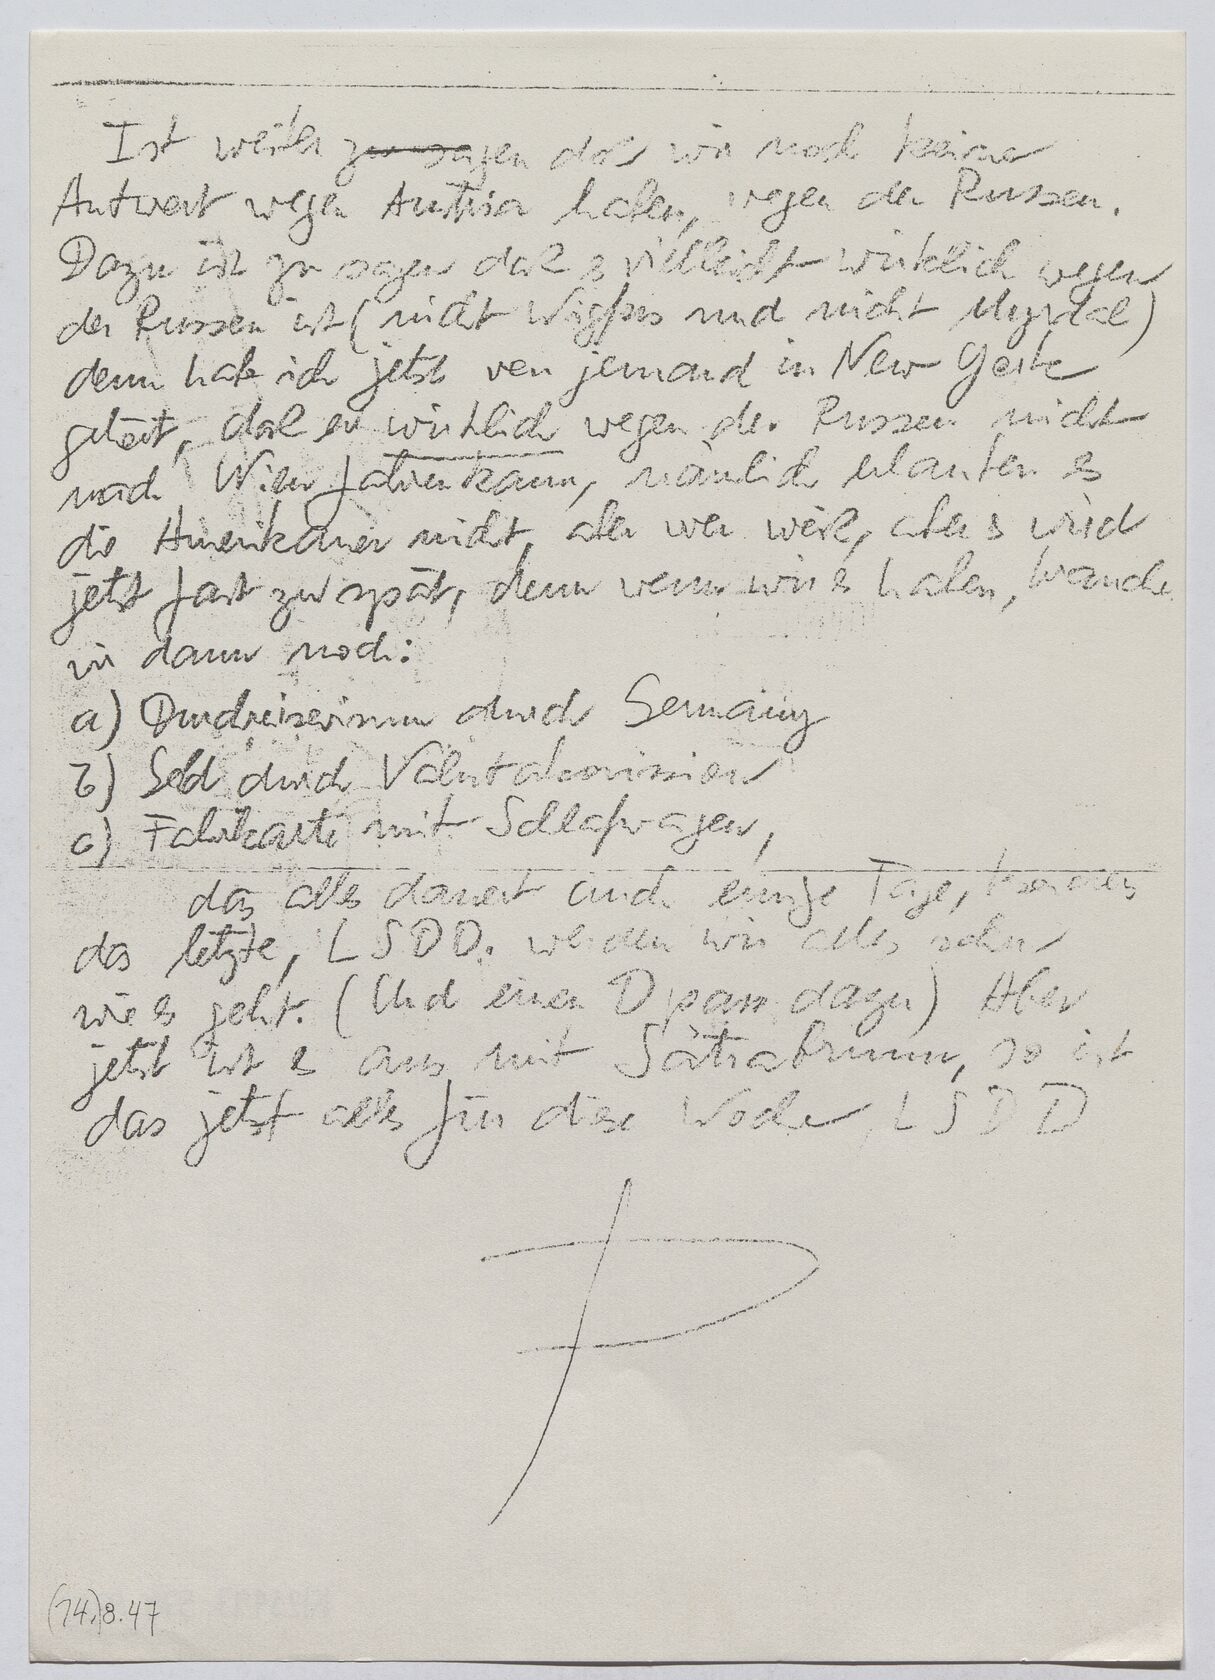 Ist weiter zu sagen daß wir noch keine
Antwort wegen Austria haben, wegen der Russen.
Dazu ist zu sagen daß es vielleicht wirklich wegen
der Russen ist (nicht Wigforss und nicht Myrdal)
denn hab ich jetzt von jemand in New York
gehört, daß er wirklich wegen der Russen nicht
nach Wien fahren kann, nämlich erlauben es
die Amerikaner nicht, aber wer weiß, aber es wird
jetzt fast zu spät, denn wenn wir es haben, brauche
wir dann noch:
a) Durchreisevisum durch Germainy
b) Geld durch Valutakomission
c) Fahrkarte mit Schlafwagen,
das alles dauert auch einige Tage,
das letzte, LSDD. werden wir alles sehn
wie es geht. (Und einen D pass dazu) Aber
jetzt ist es aus mit Sätrabrunn, so ist
das jetzt alles für diese Woche, LSDD
P
(14.)8.47